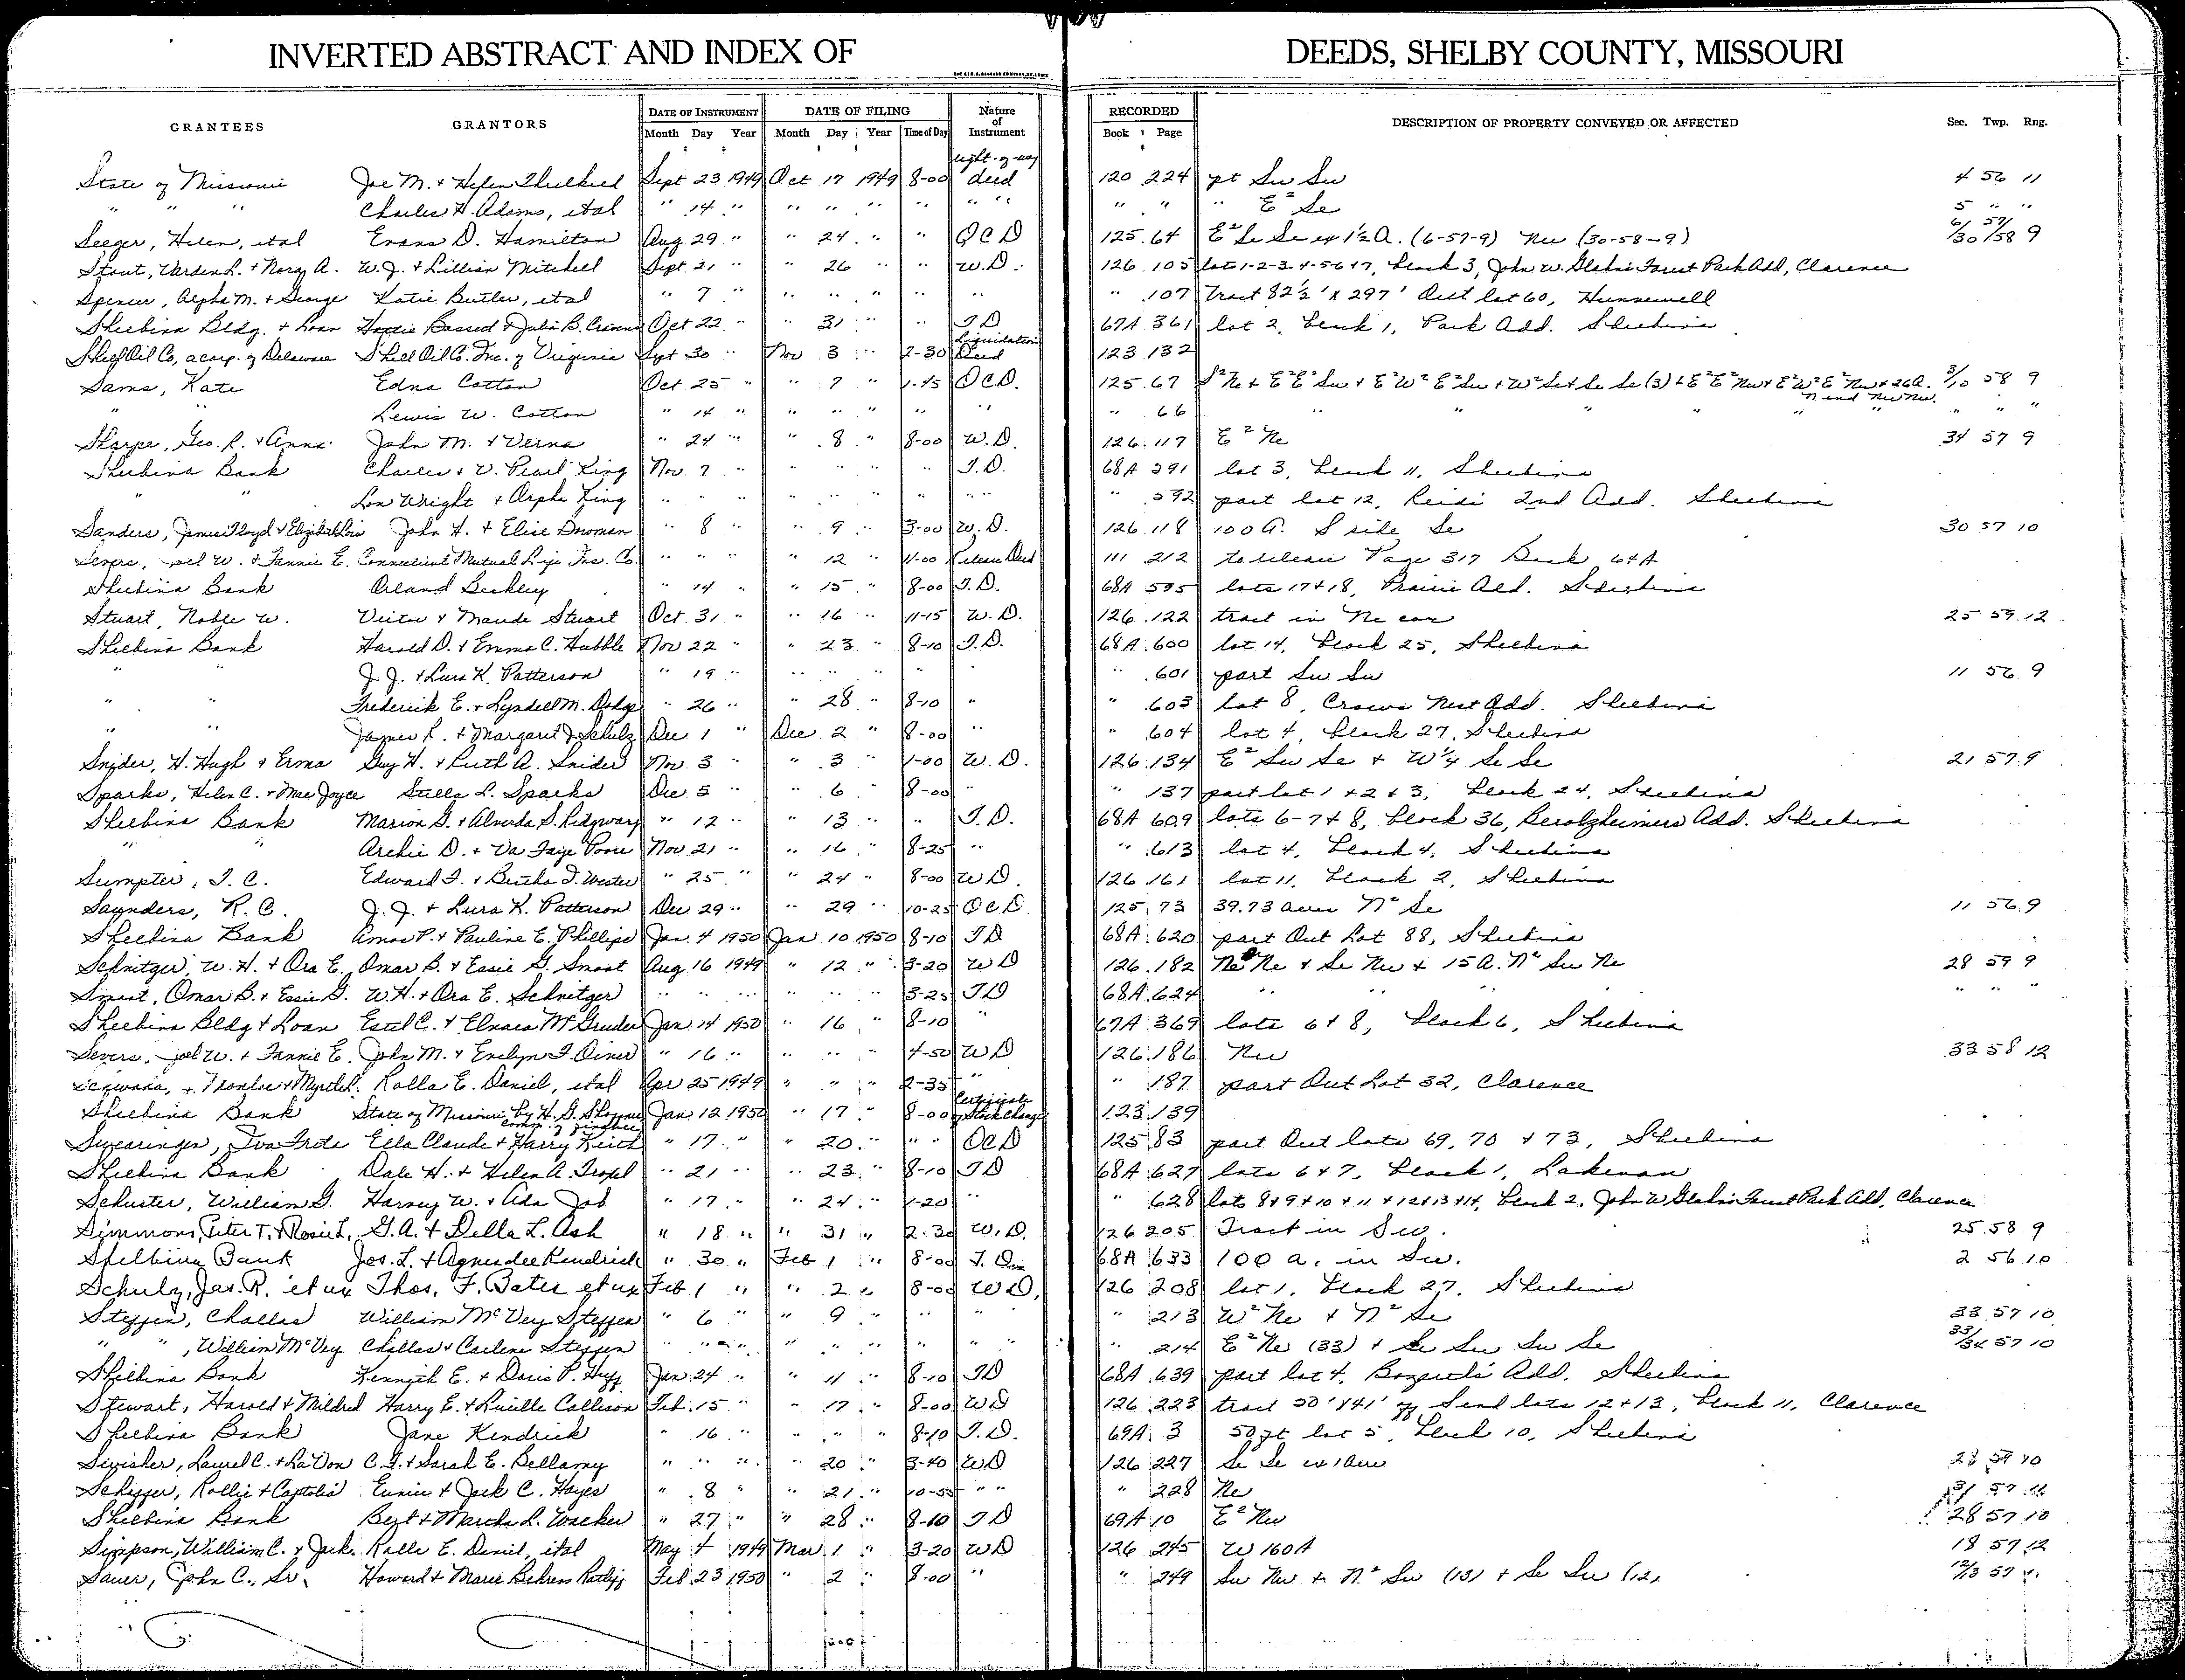 INVERTED ABSTRACT AND INDEX OF DEEDS, SHELBY COUNTY, MISSOURI
GRANTEES GRANTORS DATE OF INSTRUMENT DATE OF FILING Nature of Instrument RECORDED DESCRIPTION OF PROPERTY CONVEYED OR AFFECTED Sec. Twp. Rng.
Month Day Year Month Day Year Time of Day Book Page
State of Missouri Joe M. + Helen Threlkeld Sept 23 1949 Oct 17 1949 8-00 right-of-way deed 120 224 pt Sw Sw 4 56 11
" " " Charles H. Adams, etal " 14 " " " " " " " " " " E² Se 5 " "
Seeger, Helen, etal Evans D. Hamilton Aug 29 " " 24 " " QCD 125 64 E² Se Se ex 1½ A. (6-57-9) Nw (30-58-9) 6/30 57/58 9
Stout, Varden L. + Nora A. W. J. + Lillian Mitchell Sept 21 " " 26 " " W.D. 126 105 lots 1-2-3-4-5-6+7, block 3, John W. Glahn's Forest Park Add, Clarence
Spencer, Alpha M. + George Katie Butler, etal " 7 " " " " " " " 107 Tract 82½' x 297' Out lot 60, Hunnewell
Shelbina Bldg. + Loan Hattie Bassed + Julia B. Oct 22 " " 31 " " T D 67A 361 lot 2, block 1, Park Add. Shelbina
Shell Oil Co, a corp. of Delaware Shell Oil Co. Inc. of Virginia Sept 30 " Nov 3 " 2-30 Liquidation Deed 123 132
Sams, Kate Edna Cotton Oct 25 " " 7 " 1-45 QCD. 125 67 S² Ne + E² E² Sw + E² W² E² Sw + W² Se + Se Se (3) + E² E² Nw + E² W² E² Nw + 26 A. n end Nw Nw. 3/10 58 9
" " Lewis W. Cotton " 14 " " " " " " " 66 " " " " " " " " "
Sharpe, Geo. R. + Anna John M. + Verna " 24 " " 8 " 8-00 W.D. 126 117 E² Ne 34 57 9
Shelbina Bank Charles + V. Pearl King Nov. 7 " " " " " T.D. 68A 591 lot 3, block 11, Shelbina
" " Lon Wright + Orpha King " " " " " " " " " 592 part lot 12, Reids 2nd Add. Shelbina
Sanders, James Floyd + Elizabeth Lois John H. + Elise Dowman " 8 " " 9 " 3-00 W.D. 126 118 100 A. S side Se 30 57 10
Severs, Joel W. + Fannie E. Connecticut Mutual Life Ins. Co. " " " " 12 " 11-00 Release Deed 111 212 to release Page 317 Book 64A
Shelbina Bank Orland Beckley " 14 " " 15 " 8-00 T.D. 68A 595 lots 17+18, Prairie Add. Shelbina
Stuart, Noble W. Victor + Maude Stuart Oct 31 " " 16 " 11-15 W.D. 126 122 tract in Ne cor 25 59 12
Shelbina Bank Harold D. + Emma C. Hubble Nov 22 " " 23 " 8-10 T.D. 68A 600 lot 14, block 25, Shelbina
" " J. J. + Lura K. Patterson " 19 " " " " " " " 601 part Sw Sw 11 56 9
" " Frederick E. + Lyndell M. Dodge " 26 " " 28 " 8-10 " " 603 lot 8, Crows Nest Add. Shelbina
" " James R. + Margaret J. Schulz Dec 1 " Dec. 2 " 8-00 " " 604 lot 4, block 27, Shelbina
Snider, H. Hugh + Erma Guy H. + Ruth A. Snider Nov. 3 " " 3 " 1-00 W.D. 126 134 E² Sw Se + W¼ Se Se 21 57 9
Sparks, Helen C. + Mae Joyce Stella L. Sparks Dec 5 " " 6 " 8-00 " " 137 part lot 1 + 2 + 3, block 24, Shelbina
Shelbina Bank Marion G. + Alverda S. Ridgway " 12 " " 13 " " T.D. 68A 609 lots 6-7+8, block 36, Berolzheimers Add. Shelbina
" " Archie D. + Va Faye Poore Nov 21 " " 16 " 8-25 " " 613 lot 4, block 4, Shelbina
Sumpter, T. C. Edward F. + Bertha J. Wester " 25 " " 24 " 8-00 WD. 126 161 lot 11, block 2, Shelbina
Saunders, R. C. J. J. + Lura K. Patterson Dec 29 " " 29 " 10-25 QCD 125 73 39.73 acres N² Se 11 56 9
Shelbina Bank Amos P. + Pauline E. Phillips Jan. 4 1950 Jan. 10 1950 8-10 TD 68A 620 part Out Lot 88, Shelbina
Schnitger, W. H. + Ora E. Omar B. + Essie G. Smoot Aug 16 1949 " 12 " 3-20 WD 126 182 Ne Ne + Se Nw + 15 A. N² Sw Ne 28 59 9
Smoot, Omar B. + Essie G. W. H. + Ora E. Schnitger " " " " " " 3-25 TD 68A 624 " " " " " "
Shelbina Bldg + Loan Estel C. + Elnora McGruder Jan 14 1950 " 16 " 8-10 " 67A 369 lots 6+8, block 6, Shelbina
Severs, Joel W. + Fannie E. John M. + Evelyn F. Diner " 16 " " " " 4-50 WD 126 186 Nw 33 58 12
Rolla E. Daniel, etal Apr 25 1949 " " " 2-35 " " 187 part Out Lot 32, Clarence
Shelbina Bank State of Missouri by H. G. Shaffner Comm. of Finance Jan 12 1950 " 17 " 8-00 Certificate of Stock Change 123 139
Swearingen, Iva Freda Ella Claude + Harry Keith " 17 " " 20 " " " QCD 125 83 part Out lots 69, 70 + 73, Shelbina
Shelbina Bank Dale H. + Helen A. " 21 " " 23 " 8-10 TD 68A 627 lots 6+7, block 1, Lakenan
Schuster, William G. Harvey W. + Ada Job " 17 " " 24 " 1-20 " " 628 lots 8+9+10+11+12+13+14, block 2, John W Glahn's Forest Park Add, Clarence
Simmons, Peter T. + Rosie L. G. A. + Della L. Ash " 18 " " 31 " 2-30 W.D. 126 205 Tract in Sw. 25 58 9
Shelbina Bank Jos. L. + Agnes Lee Kendrick " 30 " Feb 1 " 8-00 T.D. 68A 633 100 a. in Sw. 2 56 10
Schulz, Jas. R. et ux Thos. F. Bates et ux Feb 1 " " 2 " 8-00 WD. 126 208 lot 1, block 27, Shelbina
Steffen, Challas William McVey Steffen " 6 " " 9 " " " " 213 W² Ne + N² Se 33 57 10
" ", William McVey Challas + Carlene Steffen " " " " " " " " " 214 E² Ne (33) + Se Sw Sw Se 33/34 57 10
Shelbina Bank Kenneth E. + Doris P. Huff Jan 24 " " 11 " 8-10 TD 68A 639 part lot 4, Bogarts' Add. Shelbina
Stewart, Harold + Mildred Harry E. + Lucille Callison Feb. 15 " " 17 " 8-00 WD 126 223 tract 50' x 41' off S end lots 12+13, block 11, Clarence
Shelbina Bank Jane Kendrick " 16 " " " " 8-10 T.D. 69A 3 50 ft lot 5, block 10, Shelbina
Swisher, Laurel C. + LaVon C. F. + Sarah E. Bellamy " " " " 20 " 3-40 WD 126 227 Se Se ex 1 acre 28 59 10
Rollie + Captolia Eunice + Jack C. Hayes " 8 " " 21 " 10-55 " " " 228 Ne 31 57 11
Shelbina Bank Bert + Martha L. Wacker " 27 " " 28 " 8-10 TD 69A 10 E² Nw 28 57 10
Simpson, William C. + Jack Rolla E. Daniel, etal May 4 1949 Mar 1 " 3-20 WD 126 245 W 160 A 18 57 12
Sauer, John C., Sr. Howard + Marie Behrens Ratliff Feb. 23 1950 " 2 " 8-00 " " 249 Sw Nw + N² Sw (13) + Se Sw (12) 12/13 57